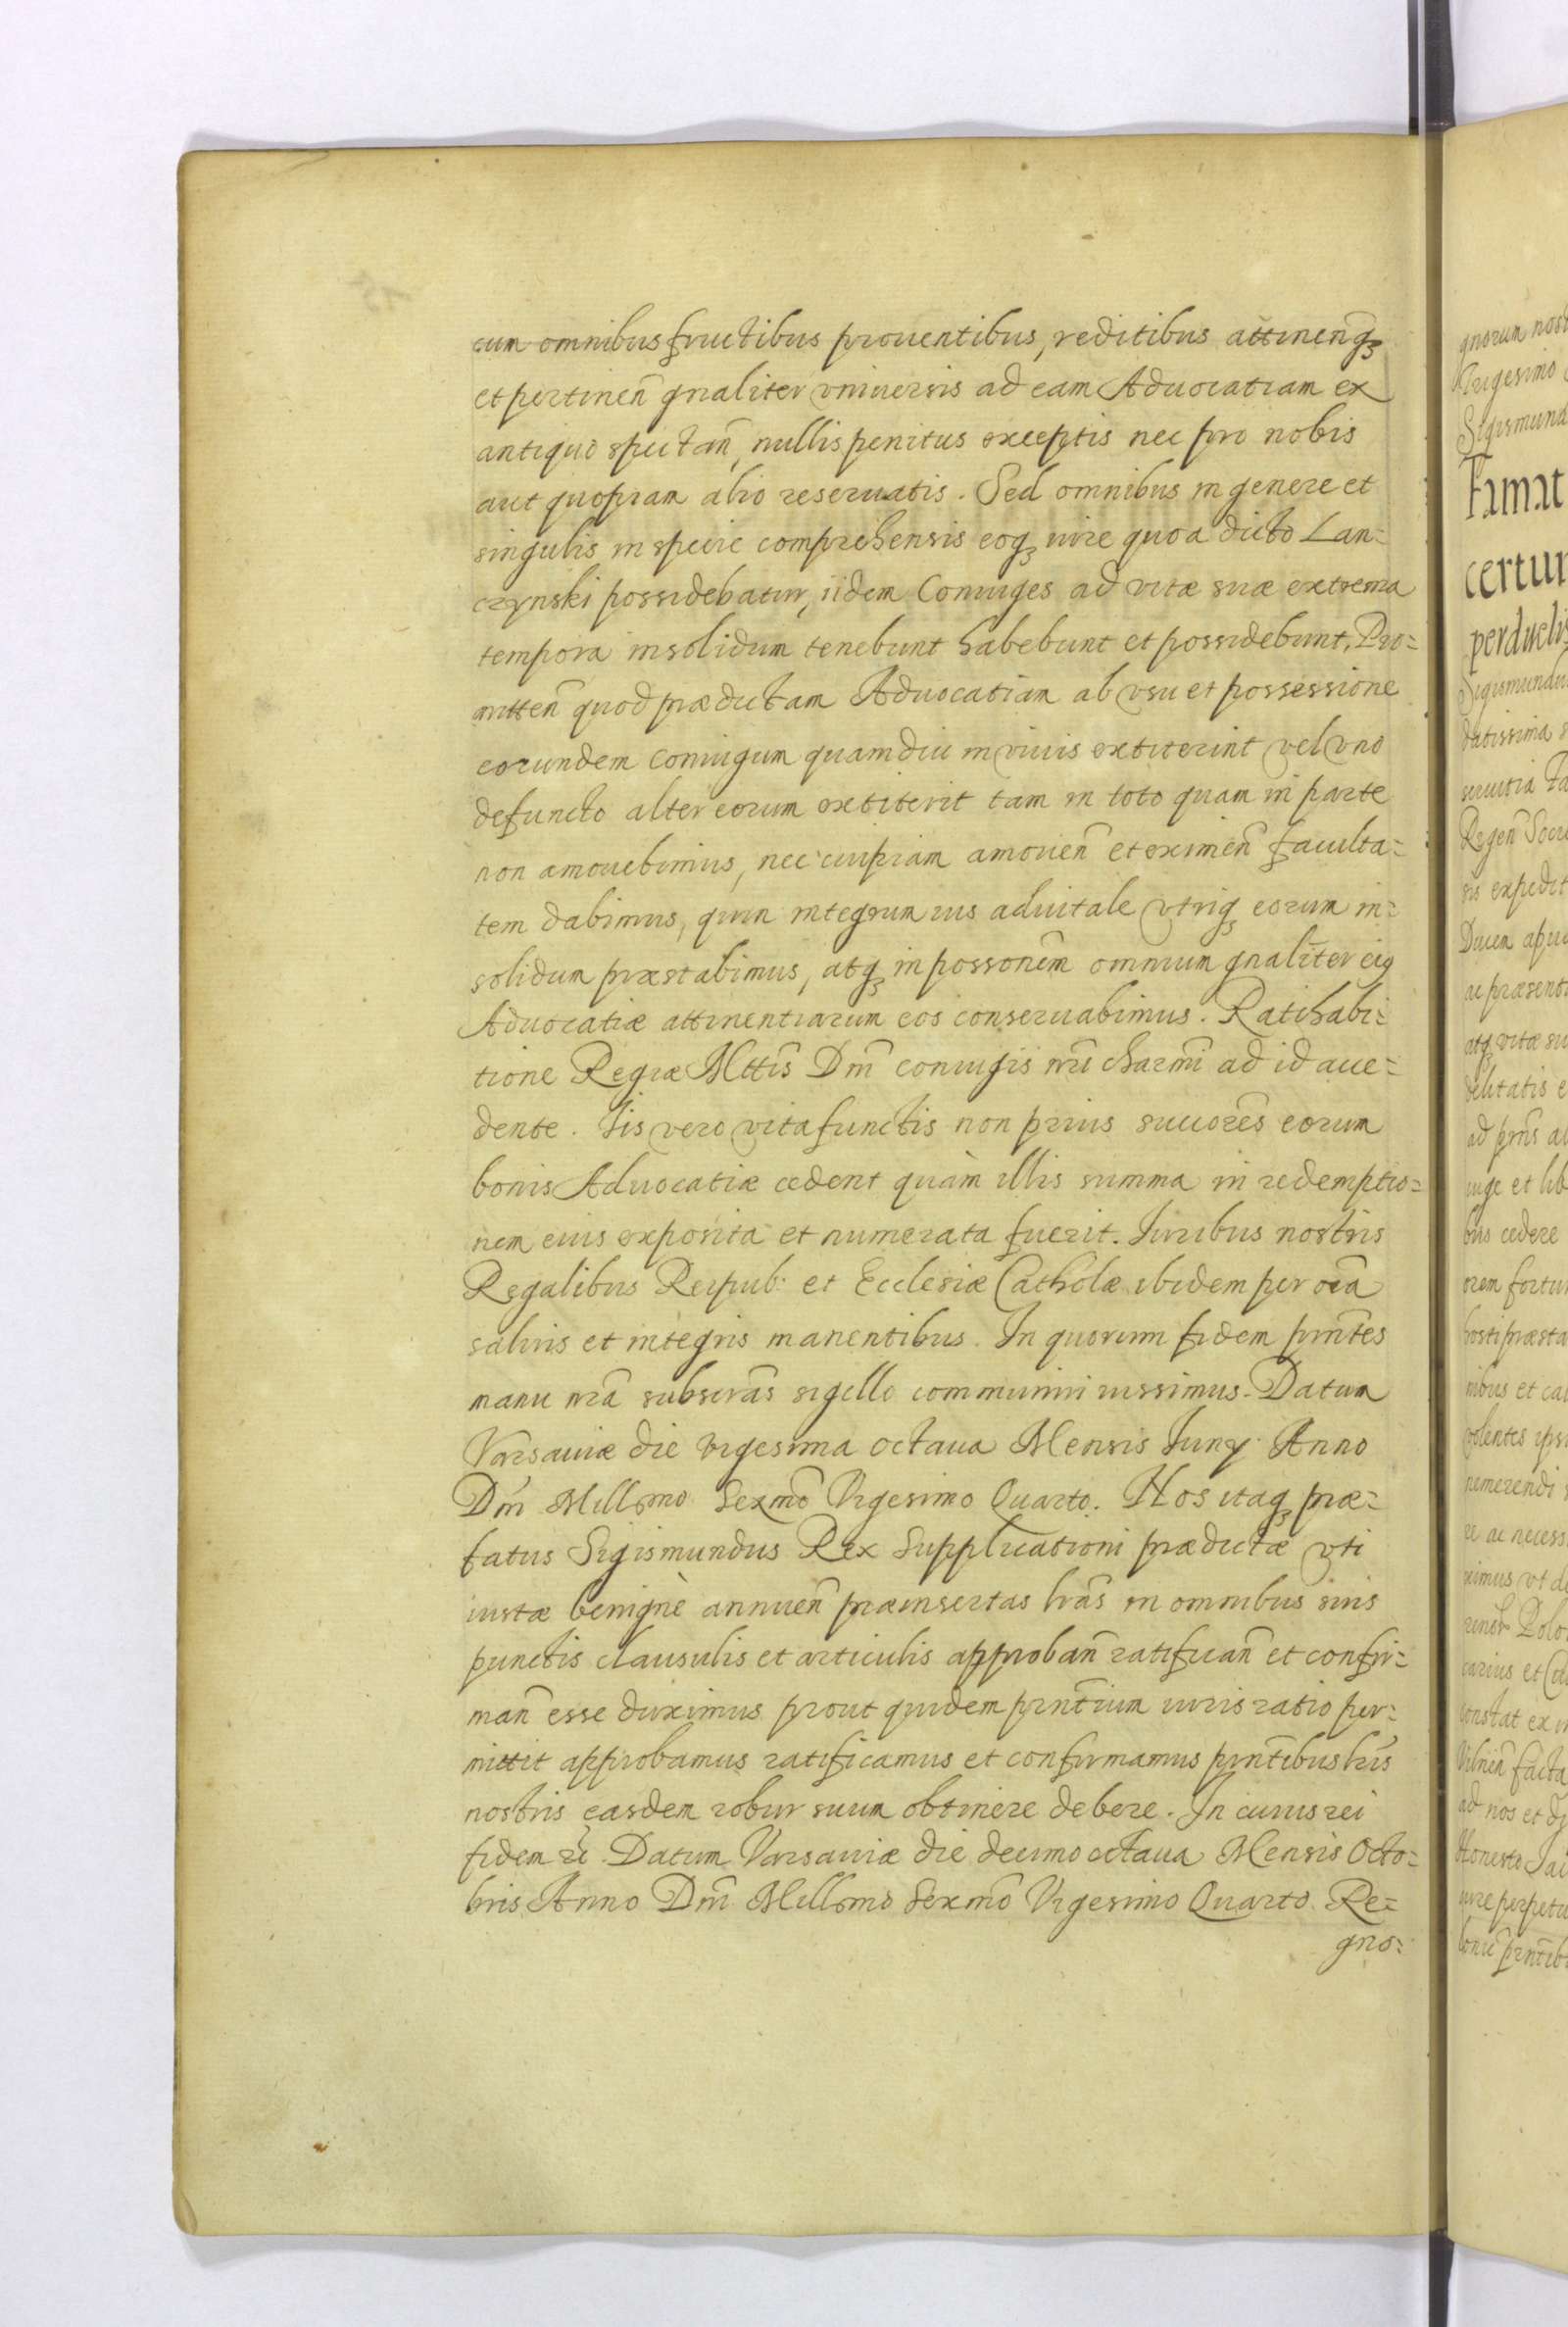 cum omnibus fructibus prouentibus, reditibus attinenq̃ꝫ
et pertineñ gnaliter vniuersis ad eam Aduocatiam ex
antiquo spectañ, nullis penitus exceptis nec pro nobis
aut quopiam alio reseruatis. Sed omnibus in genere et
singulis in specie comprehensis eoqꝫ iure quo a dicto Lan=
czynski possidebatur, iidem Coniuges ad vitæ suæ extrema
tempora insolidum tenebunt habebunt et possidebunt, Pro=
mitteñ quod prædictam Aduocatiam ab vsu et possessione
eorundem coniugum quamdiu in viuis extiterint vel vno
defuncto alter eorum extiterit tam in toto quam in parte
non amouebimus, nec cuipiam amoueñ et eximeñ faculta=
tem dabimus, quin integrum ius aduitale vtriqꝫ eorum in=
solidum præstabimus, atqꝫ in possonem̃ omnium gnaliter eiꝯ
Aduocatiæ attinentiarum eos conseruabimus. Ratihabi=
tione Regiæ Mttis̃ Dm̃ coniugis nr̃i charmi̇̃ ad id acce=
dente. Iis vero vita functis non prius succores̃ eorum
bonis Aduocatiæ cedent quàm illis summa in redemptio=
nem eius exposita et numerata fuerit. Iuribus nostris
Regalibus Reipub: et Ecclesiæ Cathol̃æ ibidem per oĩa
saluis et integris manentibus. In quorum fidem prñtes
manu nr̃a subscras̃ sigillo communiri iussimus. Datum
Varsauiæ die vigesima octaua Mensis Iuny Anno
Dñi Millsmo Sexm̃o Vigesimo Quarto. Nos itaqꝫ præ=
fatus Sigismundus Rex Supplicationi prædictæ vti
iustæ benignè annueñ præinsertas lr̃as in omnibus suis
punctis clausulis et articulis approbañ ratificañ et confir=
mañ esse duximus prout quidem prñtium iuris ratio per=
mittit approbamus ratificamus et confirmamus prñtibus lr̃is
nostris easdem robur suum obtinere debere. In cuius rei
fidem &c̃. Datum Varsauiæ die decimo octaua Mensis Octo=
bris Anno Dñi Millsmo Sexm̃o Vigesimo Quarto. Re=
gno=
gnorum nost
Sigismund
certum
perduelis
Sigismundus
datissima s
seruitia
expedit
apud
præsent
atqꝫ vitæ su
delitatis e
uge et lib
bus cedere
orem fortun
hosti præsta
nibus et ca
volentes ipsi
nemerendi
re ac necess
ximus vt de
carius et
constat ex
Vilneñ facta
ad nos et
Honesto Iac
iure perpetu
prñtib